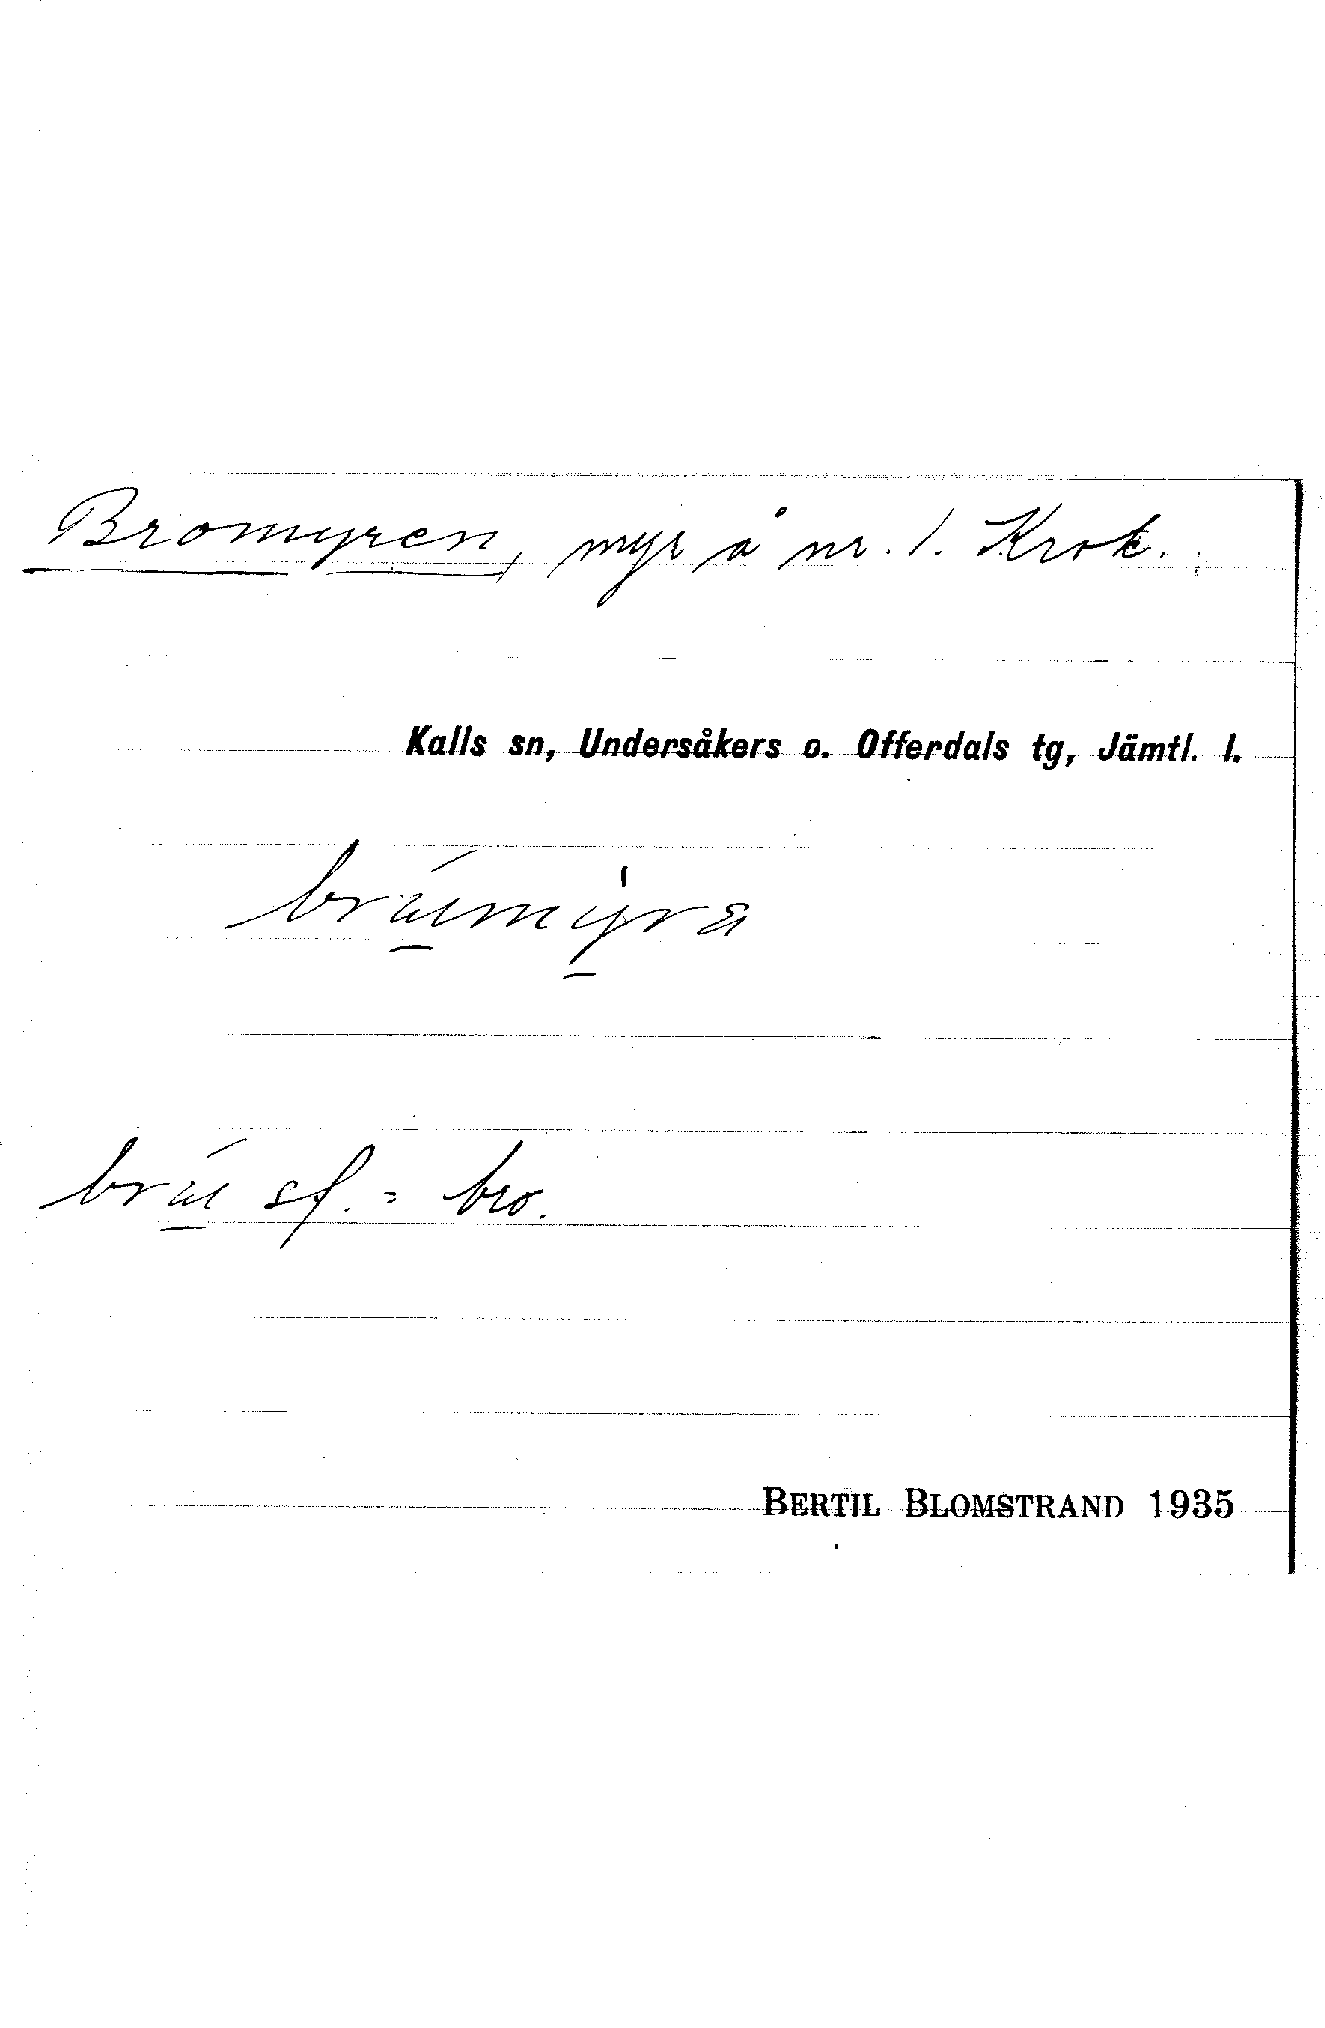 Bromyren, myr å nr. 1. Krok.
Kalls sn, Undersåkers o. Offerdals tg, Jämtl. l.
brú̲my̲̍ra
brú̲ sf. = bro.
BERTIL BLOMSTRAND 1935